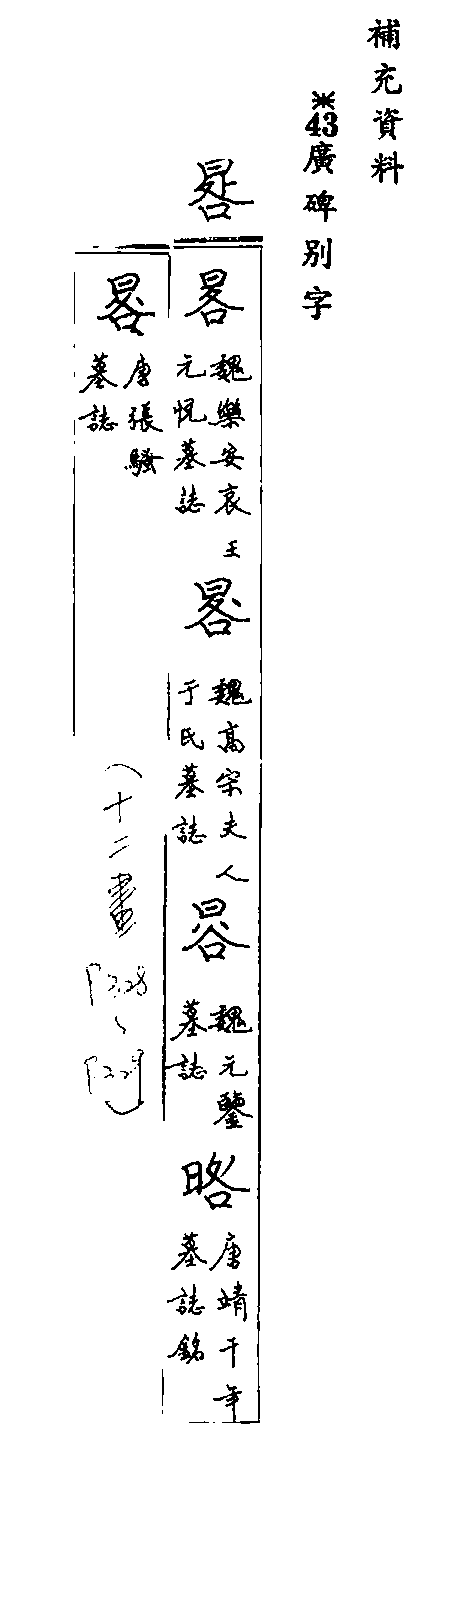 補充資料
※43廣碑別字
晷
晷
魏樂安哀王
元悅墓誌
晷
魏高宗夫人
于氏墓誌
魏元鑒
墓誌
唐靖千年
墓誌銘
晷
唐張騷
墓誌
(十二畫
P228~
P229)